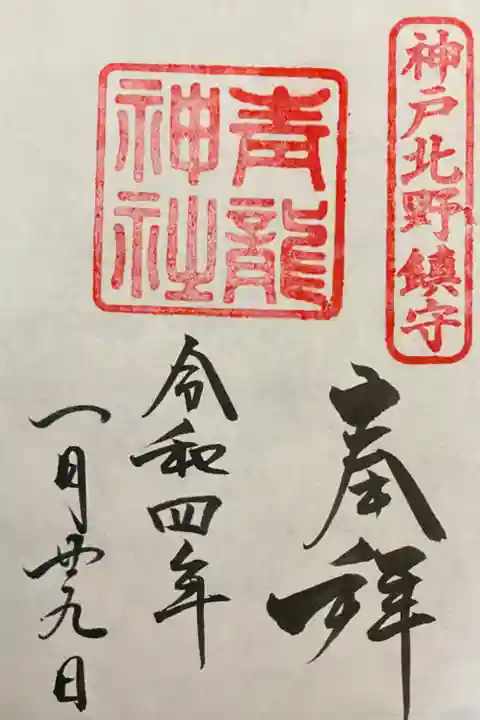 神戸北野鎮守
奉拝
青龍
神社
令和四年
一月廿九日